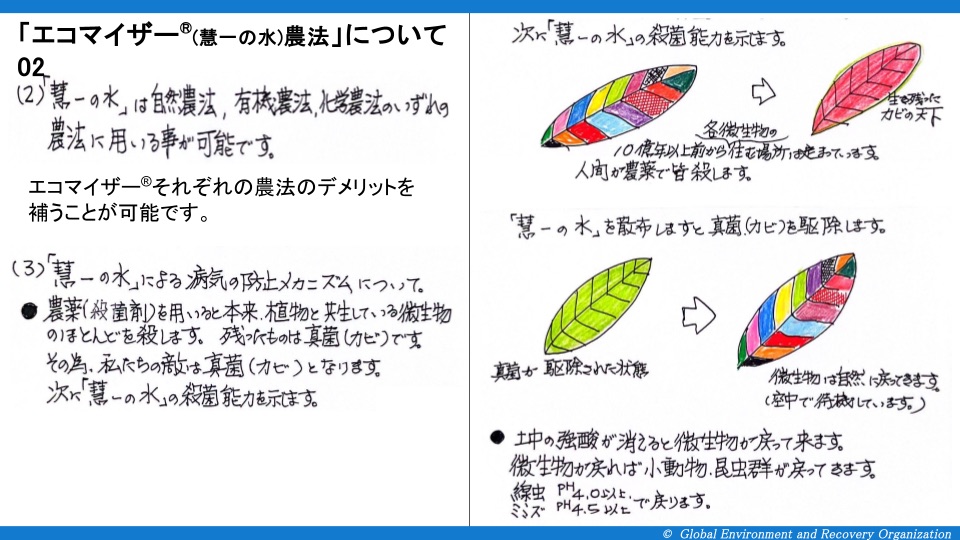 「エコマイザー®(慧一の水)農法」について
02
(2)「慧一の水」は自然農法、有機農法、化学農法のいずれの
農法に用いる事が可能です。
エコマイザー®それぞれの農法のデメリットを
補うことが可能です。
(3)「慧一の水」による病気の防止メカニズムについて。
● 農薬(殺菌剤)を用いると本来、植物と共生している微生物
のほとんどを殺します。 残ったものは真菌(カビ)です。
その為、私たちの敵は真菌(カビ)となります。
次に「慧一の水」の殺菌能力を示します。
次に「慧一の水」の殺菌能力を示します。
生き残った
カビの天下
各微生物の
10億年以上前から住む場所は定まっています。
人間が農薬で皆殺します。
「慧一の水」を散布しますと真菌(カビ)を駆除します。
真菌が駆除された状態
微生物は自然に戻ってきます。
(空中で待機しています。)
● 土中の強酸が消えると微生物が戻って来ます。
微生物が戻れば小動物、昆虫群が戻ってきます。
線虫 PH4.0以上、
ミミズ PH4.5以上で戻ります。
© Global Environment and Recovery Organization